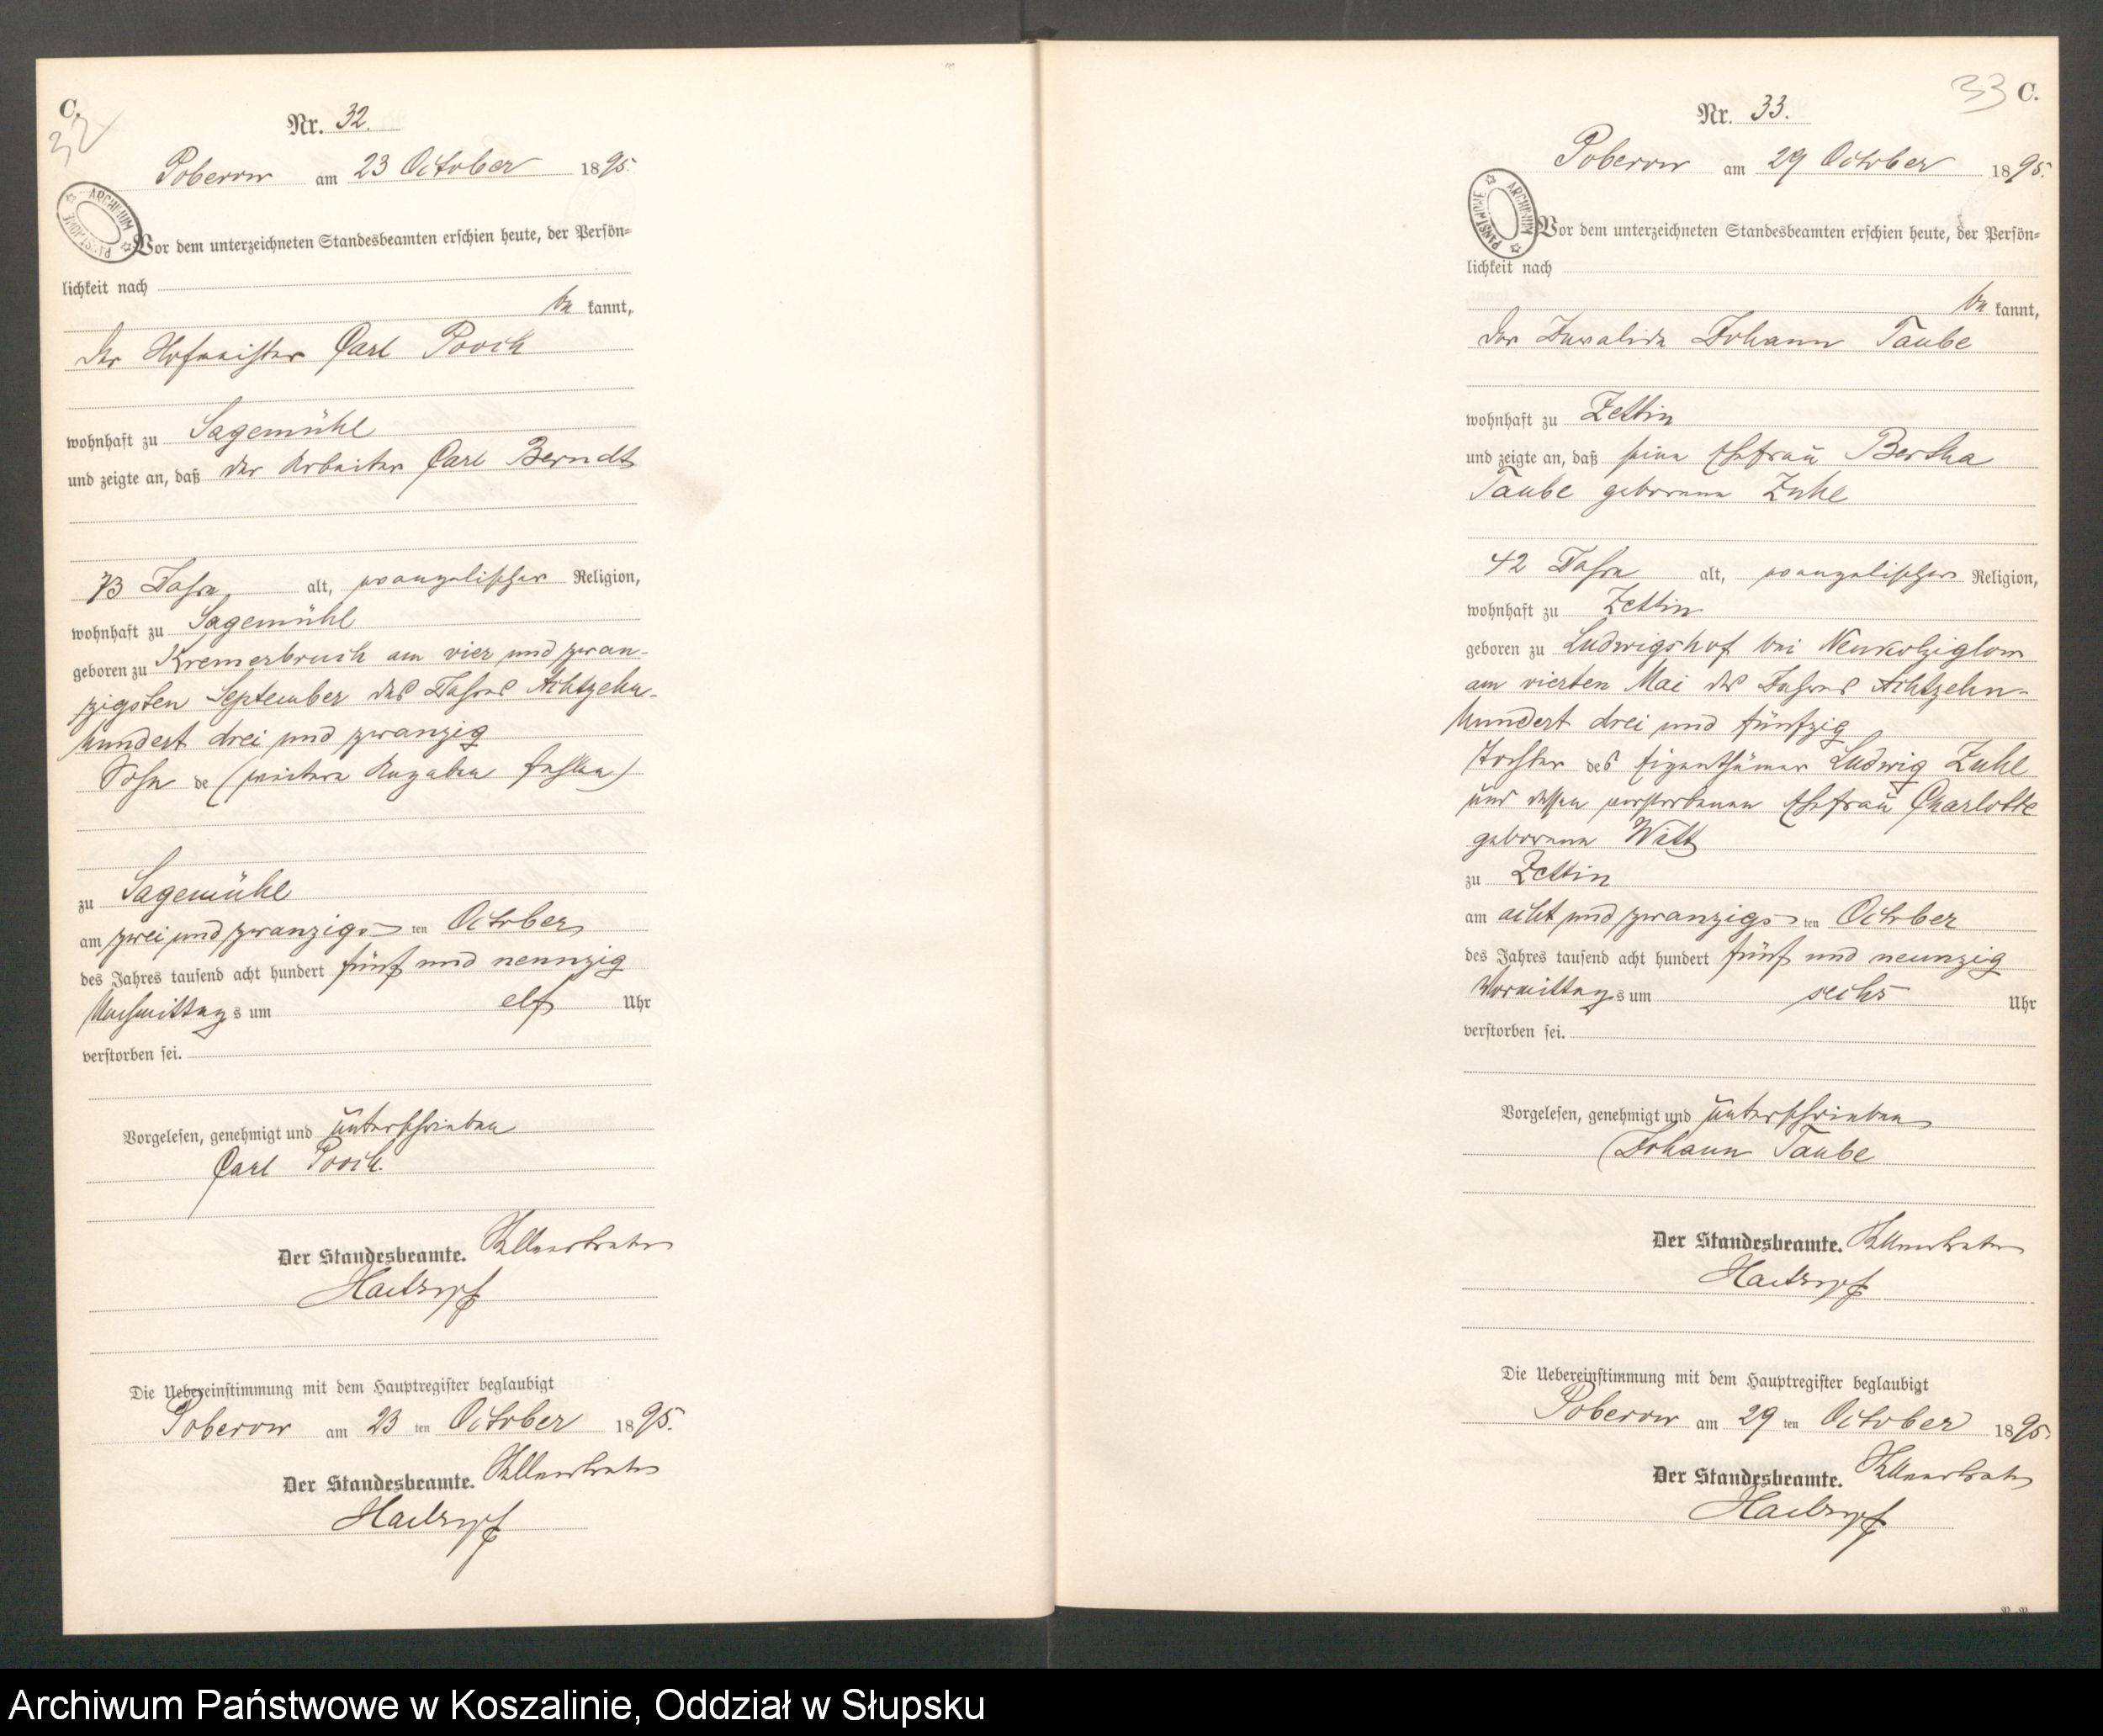 C.
32
Nr. 32.
Poberow am 23 October 1895.
ARCHIWUM PAŃSTWOWE
Vor dem unterzeichneten Standesbeamten erschien heute, der Persön=
lichkeit nach
be kannt,
der Hofmeister Carl Poock
wohnhaft zu Sagemühl
und zeigte an, daß der Arbeiter Carl Berndt
73 Jahre alt, evangelischer Religion,
wohnhaft zu Sagemühl
geboren zu Kremerbruch am vier und zwan-
zigsten September des Jahres Achtzehn-
hundert drei und zwanzig
Sohn de (weitere Angaben fehlen)
zu Sagemühl
am zwei und zwanzigs ten October
des Jahres tausend acht hundert fünf und neunzig
Nachmittags um elf Uhr
verstorben sei.
Vorgelesen, genehmigt und unterschrieben
Carl Poock.
Der Standesbeamte.
Die Uebereinstimmung mit dem Hauptregister beglaubigt
Poberow am 23 ten October 1895.
Der Standesbeamte.
33 C.
Nr. 33.
Poberow am 29 October 1895.
ARCHIWUM PAŃSTWOWE
Vor dem unterzeichneten Standesbeamten erschien heute, der Persön=
lichkeit nach
be kannt,
der Invalide Johann Taube
wohnhaft zu Zettin
und zeigte an, daß seine Ehefrau Bertha
Taube geborene Zuhl
42 Jahre alt, evangelischer Religion,
wohnhaft zu Zettin
geboren zu Ludwigshof bei Neukolziglow
am vierten Mai des Jahres Achtzehn-
hundert drei und fünfzig
Tochter des Eigenthümer Ludwig Zuhl
und dessen verstorbenen Ehefrau Charlotte
geborene Witt
zu Zettin
am acht und zwanzigs ten October
des Jahres tausend acht hundert fünf und neunzig
Vormittags um sechs Uhr
verstorben sei.
Vorgelesen, genehmigt und unterschrieben
Johann Taube
Der Standesbeamte.
Die Uebereinstimmung mit dem Hauptregister beglaubigt
Poberow am 29 ten October 1895.
Der Standesbeamte.
Archiwum Państwowe w Koszalinie, Oddział w Słupsku